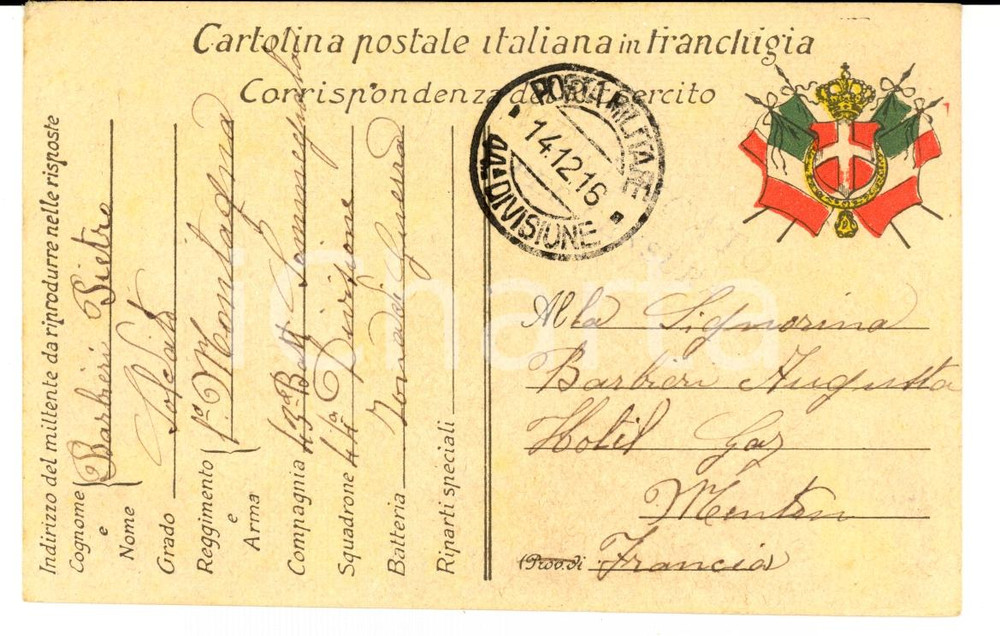 Cartolina postale italiana in franchigia
Corrispondenza del R. Esercito
POSTA MILITARE
14.12.16
44ª DIVISIONE
Indirizzo del mittente da riprodurre nelle risposte
Cognome e Nome { Barbieri Pietro
Grado Soldato
Reggimento e Arma { 1º Montagna
Compagnia 43ª Batt Someggiata
Squadrone 44ª Divisone
Batteria Zona di Guerra
Riparti speciali
Alla Signorina
Barbieri Augusta
Hotil Gaz
Menton
(Prov. di Francia
iCharta